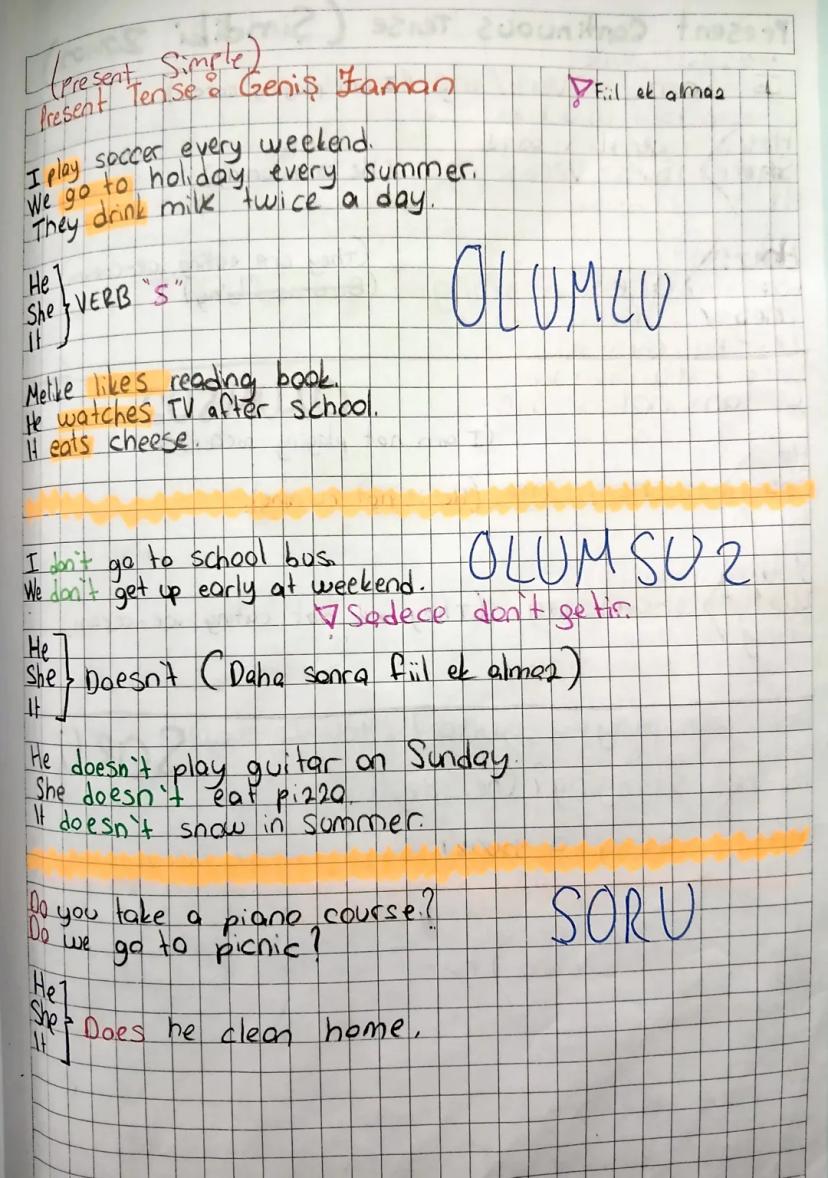 (Present Simple)
Present Tense: Geniş Zaman
Fiil ek almaz
I play soccer every weekend.
We go to holiday every summer.
They drink milk twice a day.
He
She
It
VERB "S"
OLUMLU
Melike likes reading book.
He watches TV after school.
It eats cheese.
I don't go to school bus.
We don't get up early at weekend.
OLUMSUZ
Sadece don't getir.
He
She
It
Doesn't (Daha sonra fiil ek almaz)
He doesn't play guitar on Sunday.
She doesn't eat pizza.
It doesn't snow in summer.
Do you take a piano course?
Do we go to picnic?
SORU
He
She
It
Does he clean home.